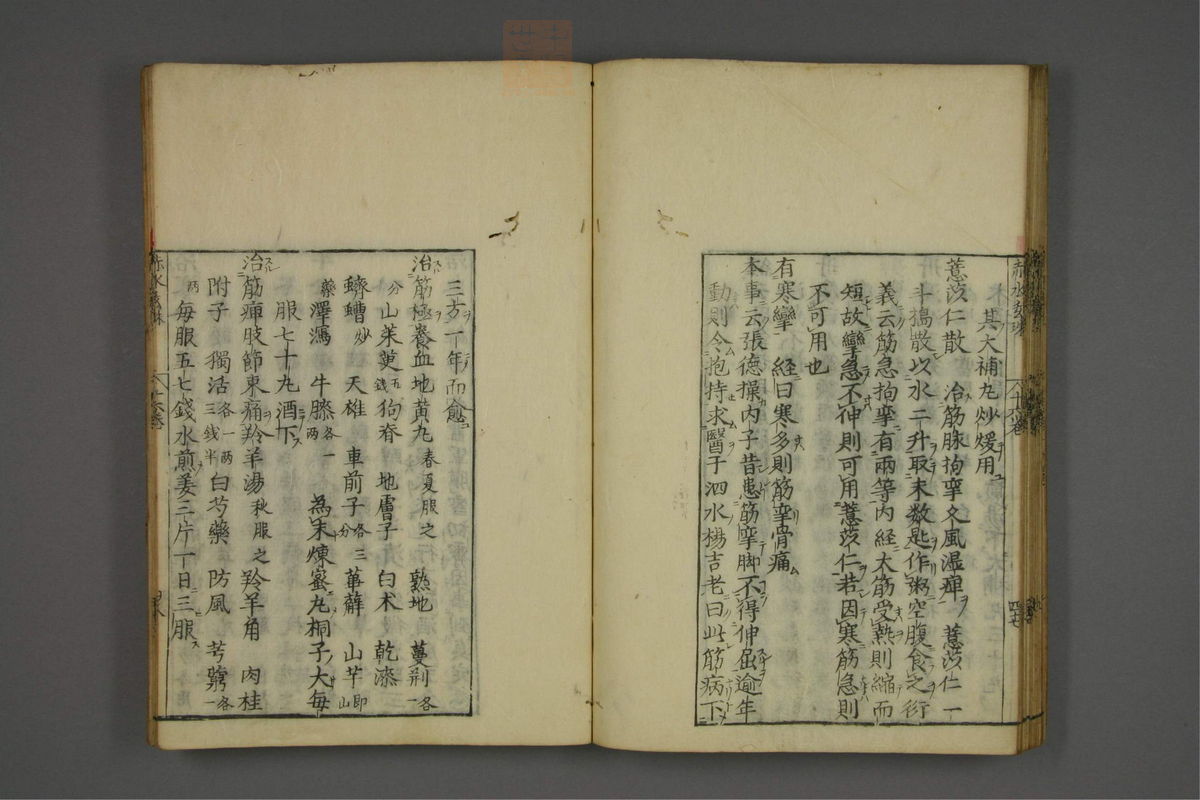 木其大補丸炒煖用
薏苡仁散　治筋脉拘挛久風湿痺　薏苡仁一
斗搗散以水二升取末数匙作粥空腹食之衍
義云筋急拘挛有兩等内経大筋受熱則縮而
短故攣急不伸則可用薏苡仁若因寒筋急則
不可用也
有寒攣　経曰寒多則筋挛骨痛
本事云張德操内子昔患筋挛脚不得伸屈逾年
動則令抱持求醫于泗水楊吉老曰此筋病下
三方一年而愈
治筋極養血地黄丸春夏服之　熟地　蔓荆各一
分　山茱萸五錢　狗脊　地膚子　白术　乾漆
蠐螬炒　天雄　車前子各三分　萆薢　山芋即山
藥　澤瀉　牛膝各一兩　為末煉蜜丸桐子大每
服七十丸酒下
治筋痺肢節束痛羚羊湯秋服之　羚羊角　肉桂
附子　獨活各一兩三錢半　白芍藥　防風　芎藭各一
兩　每服五七錢水煎姜三片一日三服